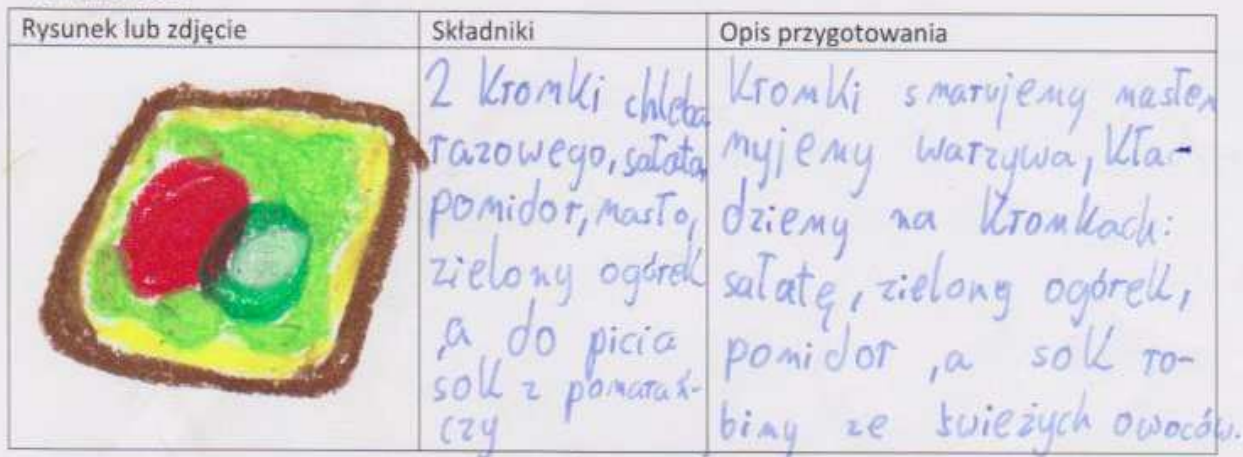 Rysunek lub zdjęcie
Składniki
2 kromki chleba
razowego, sałata,
pomidor, masło,
zielony ogórek
,a do picia
sok z pomarań-
czy
Opis przygotowania
Kromki smarujemy masłem
myjemy warzywa, kła-
dziemy na kromkach:
sałatę, zielony ogórek,
pomidor ,a sok ro-
bimy ze świeżych owoców.